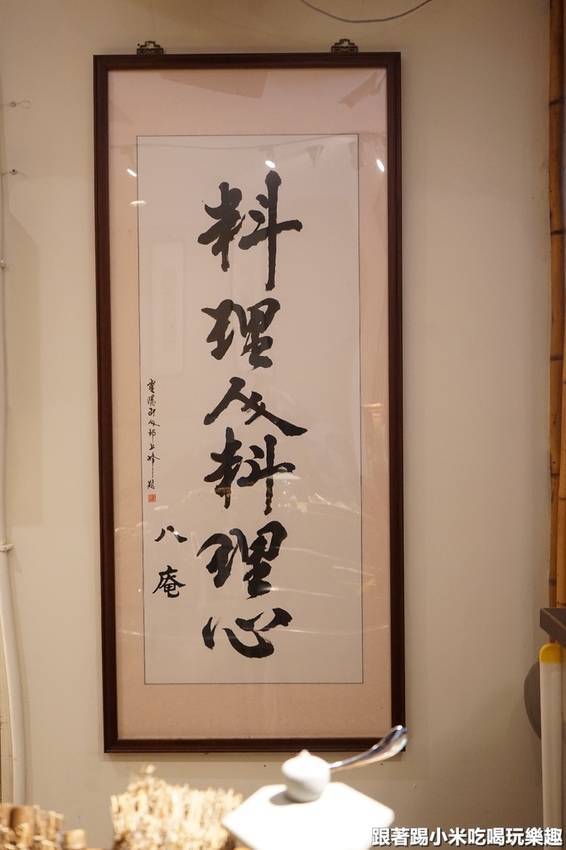 料理人料理心
八庵
跟著踢小米吃喝玩樂趣